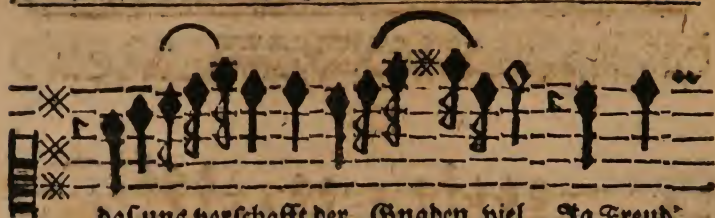 das uns verschafft der Gnaden viel Na Freud